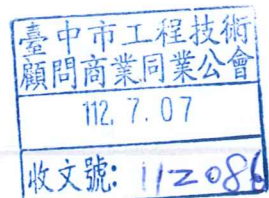 臺中市工程技術
顧問商業同業公會
112. 7. 07
收文號: 112086